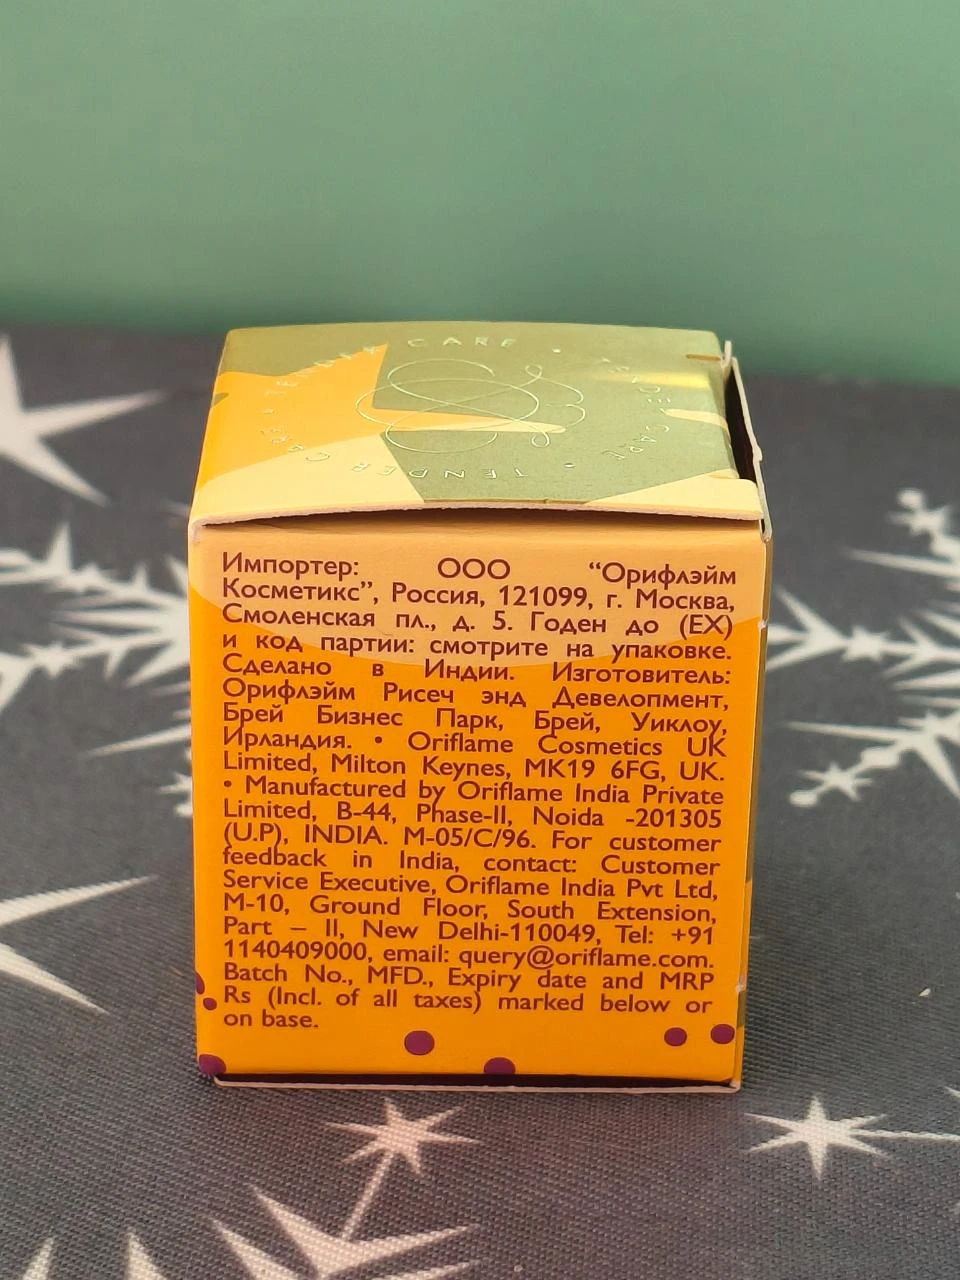 TENDER CARE • TENDER CARE • TENDER CARE •
Импортер: ООО “Орифлэйм
Косметикс”, Россия, 121099, г. Москва,
Смоленская пл., д. 5. Годен до (EX)
и код партии: смотрите на упаковке.
Сделано в Индии. Изготовитель:
Орифлэйм Рисеч энд Девелопмент,
Брей Бизнес Парк, Брей, Уиклоу,
Ирландия. • Oriflame Cosmetics UK
Limited, Milton Keynes, MK19 6FG, UK.
• Manufactured by Oriflame India Private
Limited, B-44, Phase-II, Noida -201305
(U.P), INDIA. M-05/C/96. For customer
feedback in India, contact: Customer
Service Executive, Oriflame India Pvt Ltd,
M-10, Ground Floor, South Extension,
Part – II, New Delhi-110049, Tel: +91
1140409000, email: query@oriflame.com.
Batch No., MFD., Expiry date and MRP
Rs (Incl. of all taxes) marked below or
on base.